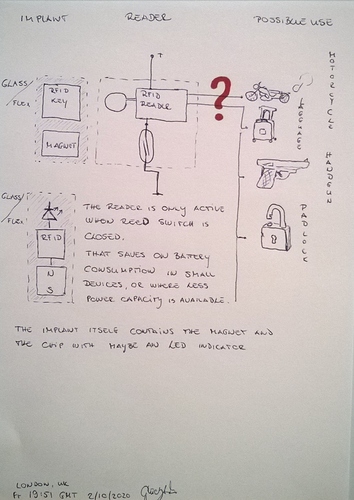 IMPLANT READER POSSIBLE USE
GLASS/
FLEX
RFID
KEY
MAGNET
+
RFID
READER
?
MOTORCYCLE
LUGGAGE
HANDGUN
PADLOCK
GLASS/
FLEX
RFID
N
S
THE READER IS ONLY ACTIVE
WHEN REED SWITCH IS
CLOSED.
THAT SAVES ON BATTERY
CONSUMPTION IN SMALL
DEVICES, OR WHERE LESS
POWER CAPACITY IS AVAILABLE.
THE IMPLANT ITSELF CONTAINS THE MAGNET AND
THE CHIP WITH MAYBE AN LED INDICATOR
LONDON, UK
19:51 GMT 2/10/2020